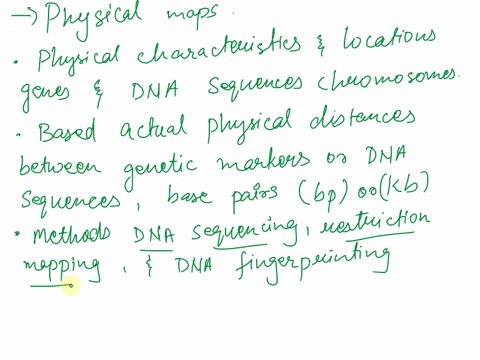 → Physical maps.
• Physical characteristics & locations
genes & DNA Sequences chromosomes.
• Based actual physical distances
between genetic markers or DNA
Sequences, base pairs (bp) or (Kb)
• Methods DNA Sequencing, restriction
mapping, & DNA fingerprinting